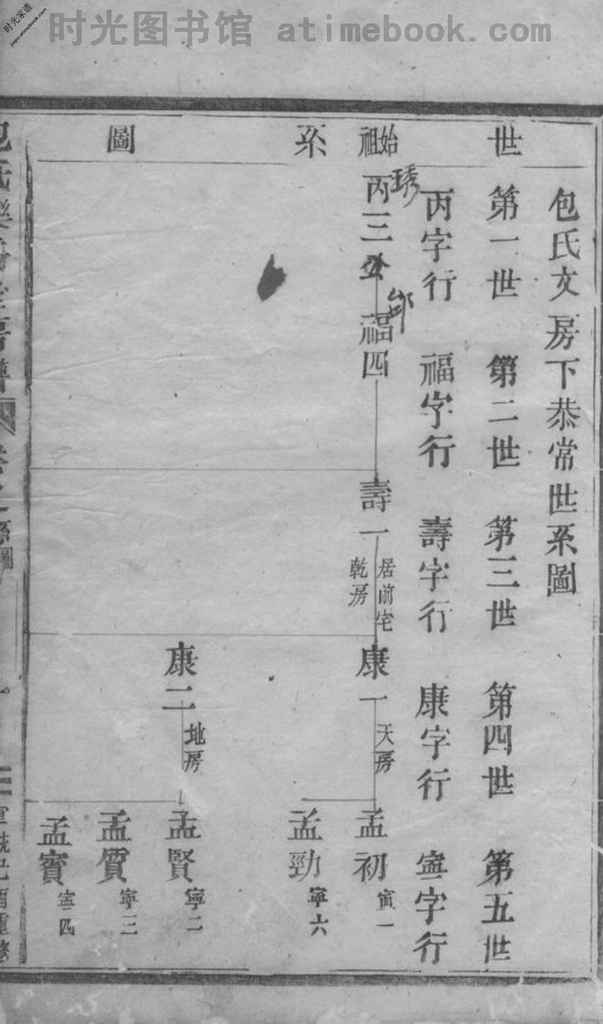 时光图书馆 atimebook.com
包氏文房下恭常世系圖
世系圖
第一世 第二世 第三世 第四世 第五世
丙字行 福字行 壽字行 康字行 寧字行
始祖
琇
丙三公
邰
福四
壽一
居前宅
乾房
康一
天房
康二
地房
孟初 寧一
孟勁 寧六
孟賢 寧二
孟質 寧三
孟寶 寧四
宣統己酉重修